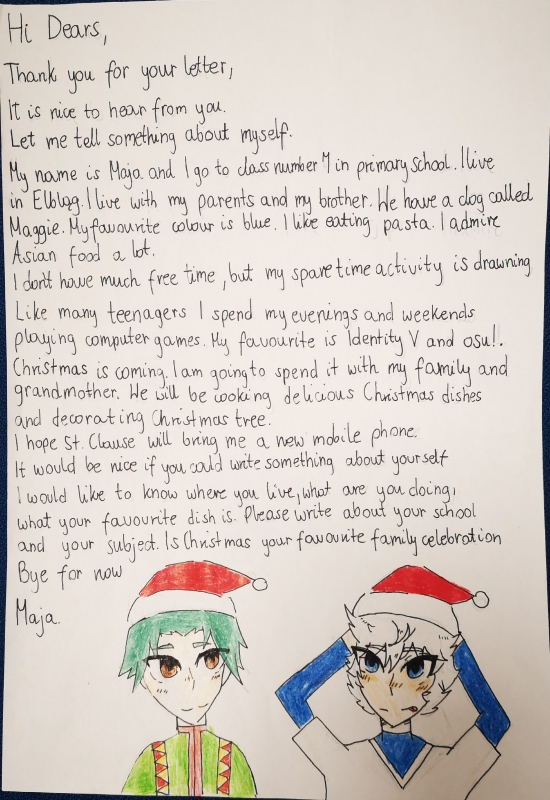 Hi Dears,
Thank you for your letter,
It is nice to hear from you.
Let me tell something about myself.
My name is Maja and I go to class number 7 in primary school. I live
in Elbląg. I live with my parents and my brother. We have a dog called
Maggie. My favourite colour is blue. I like eating pasta. I admire
Asian food a lot.
I don't have much free time, but my spare time activity is drawning
Like many teenagers I spend my evenings and weekends
playing computer games. My favourite is Identity V and osu!.
Christmas is coming. I am going to spend it with my family and
grandmother. We will be cooking delicious Christmas dishes
and decorating Christmas tree.
I hope St. Clause will bring me a new mobile phone.
It would be nice if you could write something about yourself
I would like to know where you live, what are you doing,
what your favourite dish is. Please write about your school
and your subject. Is Christmas your favourite family celebration
Bye for now
Maja.